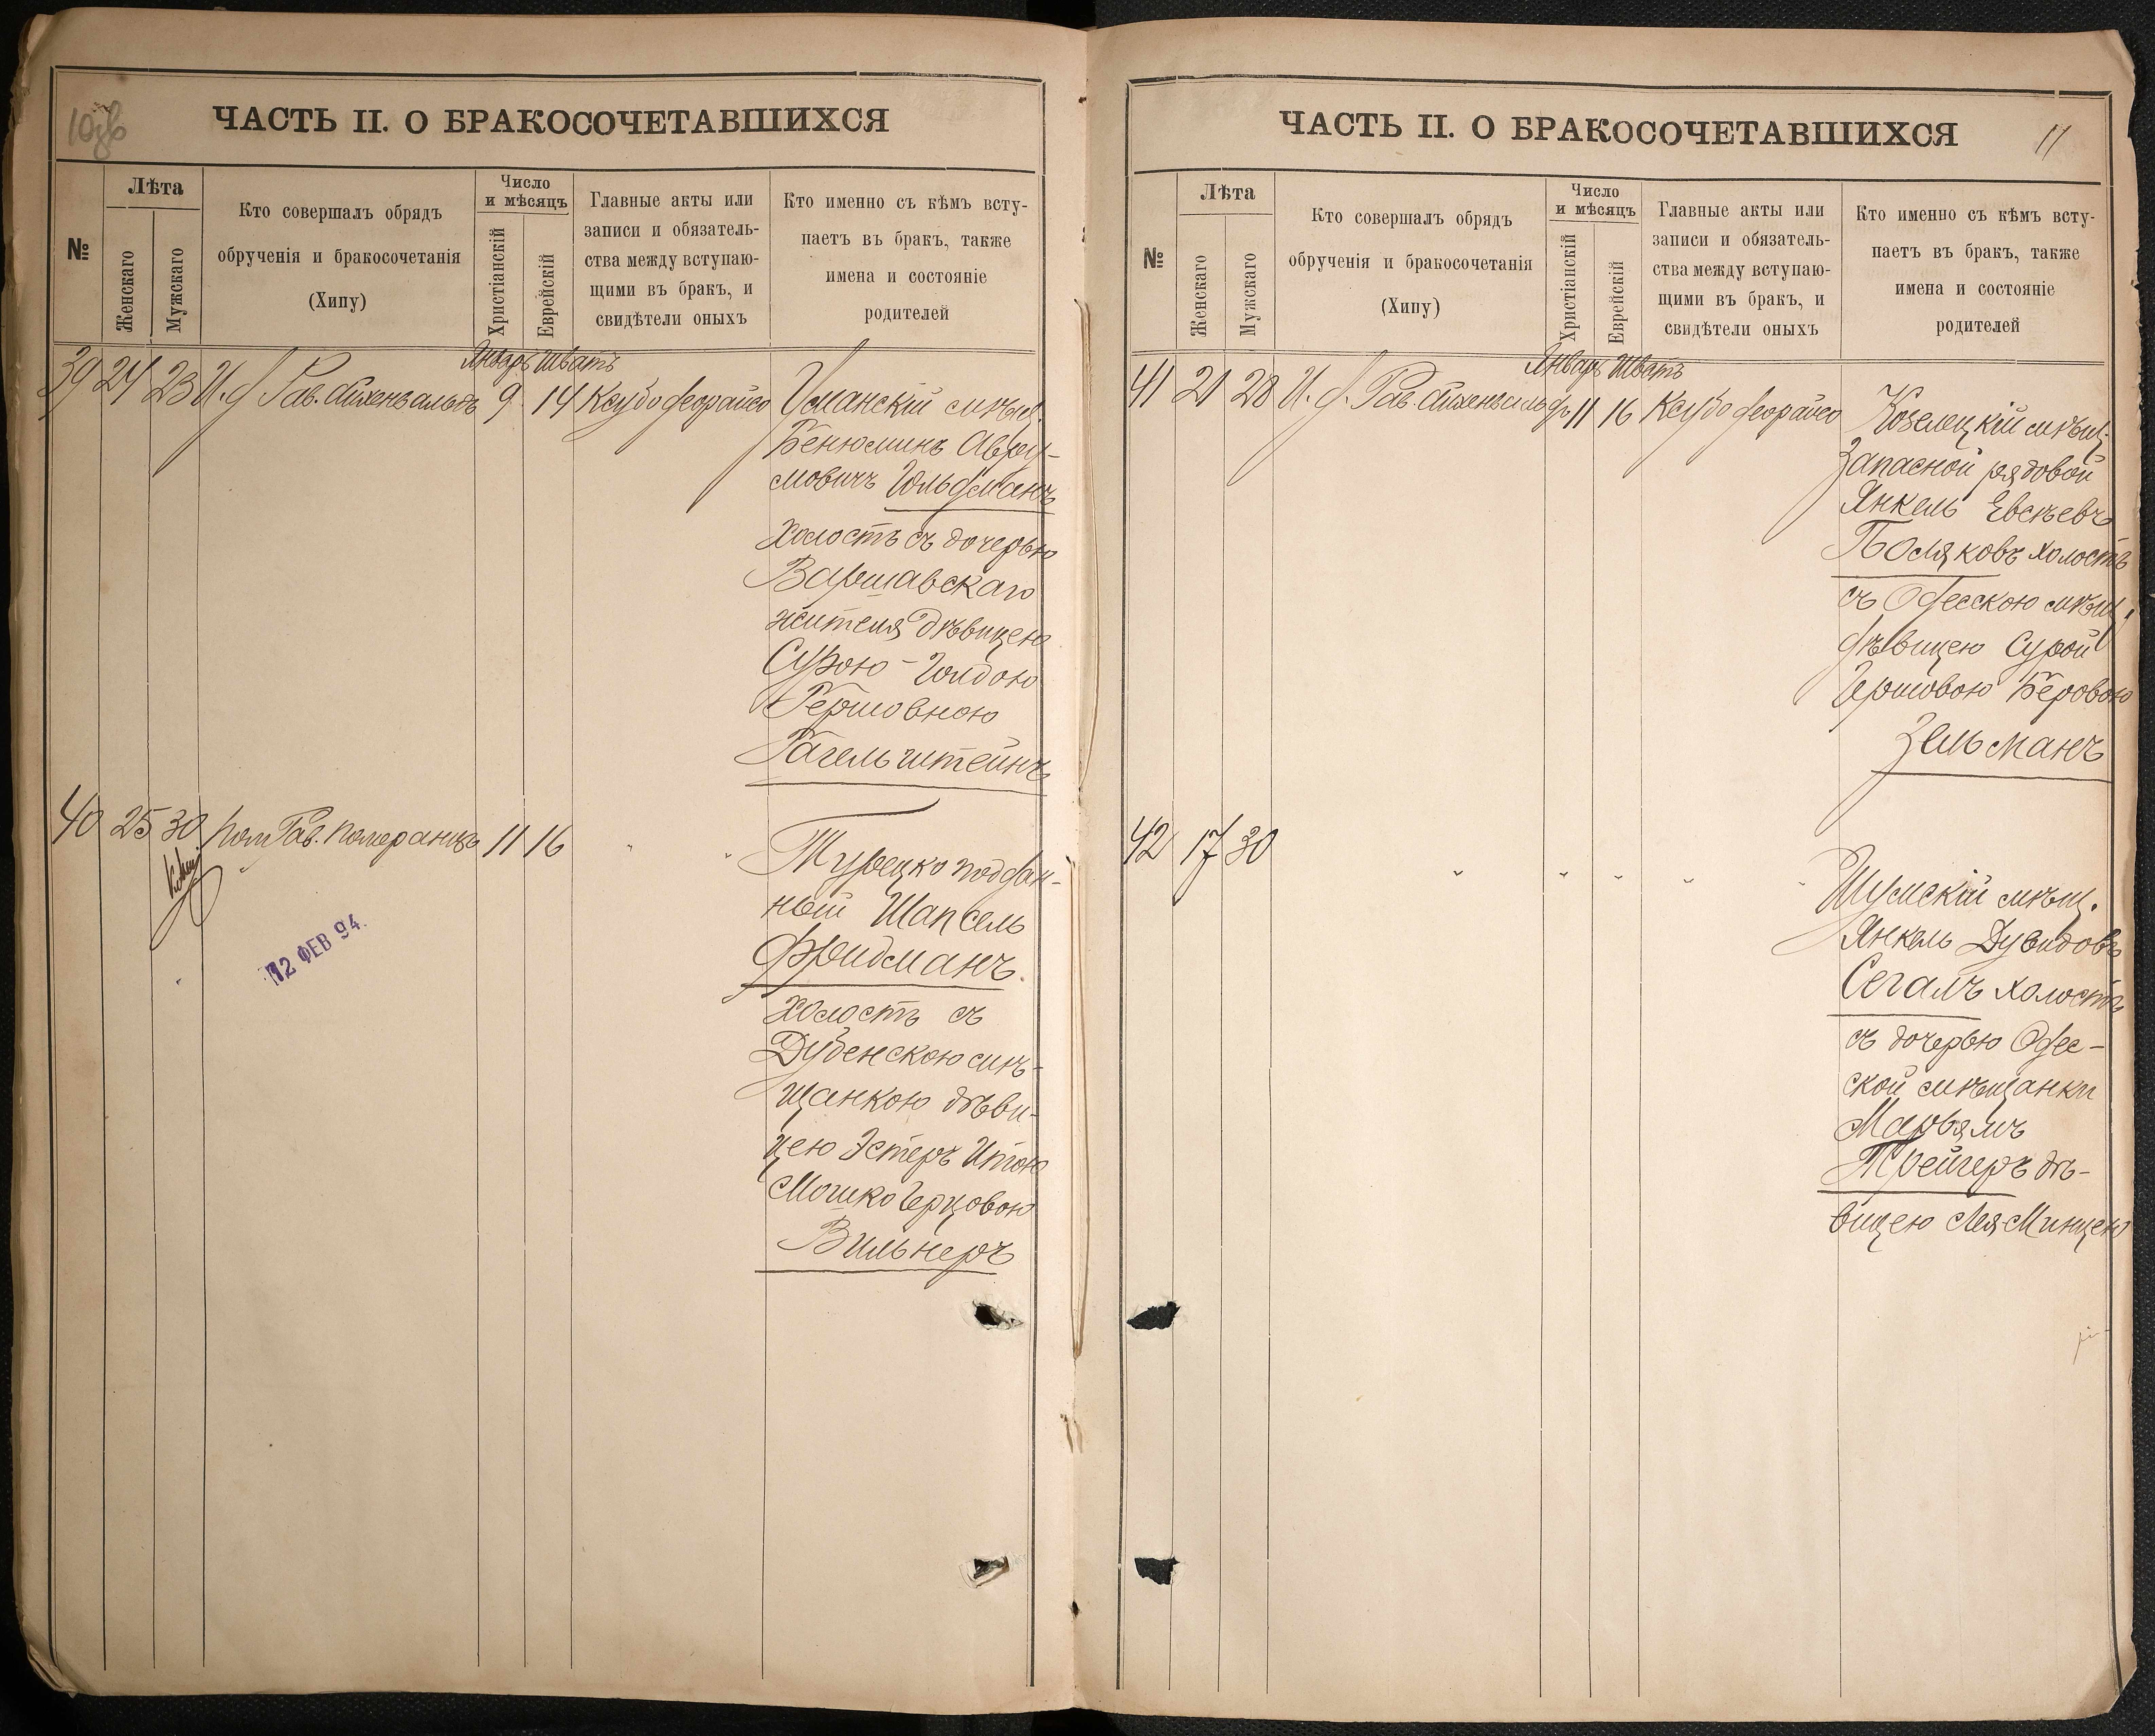 10об
ЧАСТЬ II. О БРАКОСОЧЕТАВШИХСЯ
№
Лѣта
Женскаго
Мужскаго
Кто совершалъ обрядъ
обрученія и бракосочетанія
(Хипу)
Число
и мѣсяцъ
Христіанскій
Еврейскій
Главные акты или
записи и обязатель-
ства между вступаю-
щими въ бракъ, и
свидѣтели оныхъ
Кто именно съ кѣмъ всту-
паетъ въ бракъ, также
имена и состояніе
родителей
Январь Шватъ
39 24 23 И. д. Рав. Айхенвальдъ 9 14 Ксубо деорайсо
Уманскій мѣщ.
Бенюминъ Авру-
мовичъ Гольдманъ
холостъ съ дочерью
Варшавскаго
жителя дѣвицею
Сурою-Голдою
Гершовною
Гагельштейнъ
40 25 30 Пом. Рав. Померанцъ 11 16 " "
12 ФЕВ 94.
Турецко поддан-
ный Шапсель
Фридманъ.
холостъ съ
Дубенскою мѣ-
щанкою дѣви-
цею Эстеръ Итою
Мошко Герцовою
Вильнеръ
ЧАСТЬ II. О БРАКОСОЧЕТАВШИХСЯ
11
№
Лѣта
Женскаго
Мужскаго
Кто совершалъ обрядъ
обрученія и бракосочетанія
(Хипу)
Число
и мѣсяцъ
Христіанскій
Еврейскій
Главные акты или
записи и обязатель-
ства между вступаю-
щими въ бракъ, и
свидѣтели оныхъ
Кто именно съ кѣмъ всту-
паетъ въ бракъ, также
имена и состояніе
родителей
Январь Шватъ
41 21 28 И. д. Рав. Айхенвальдъ 11 16 Ксубо деорайсо
Козелецкій мѣщ.
Запасной рядовой
Янкель Евсѣевъ
Поляковъ холостъ
съ Одесскою мѣщ.
дѣвицею Сурой
Гершовою Беровою
Зельманъ
42 17 30 " " " " "
Шумскій мѣщ.
Янкель Дувидовъ
Сегалъ холостъ
съ дочерью Одес-
ской мѣщанки
Марьямъ
Трейгеръ дѣ-
вицею Лея-Минцею